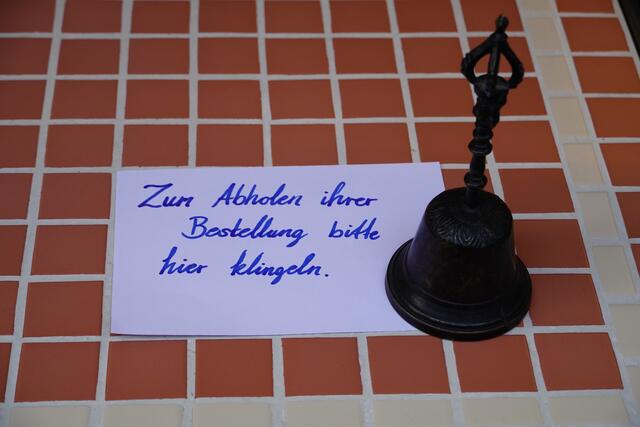 Zum Abholen ihrer
Bestellung bitte
hier klingeln.